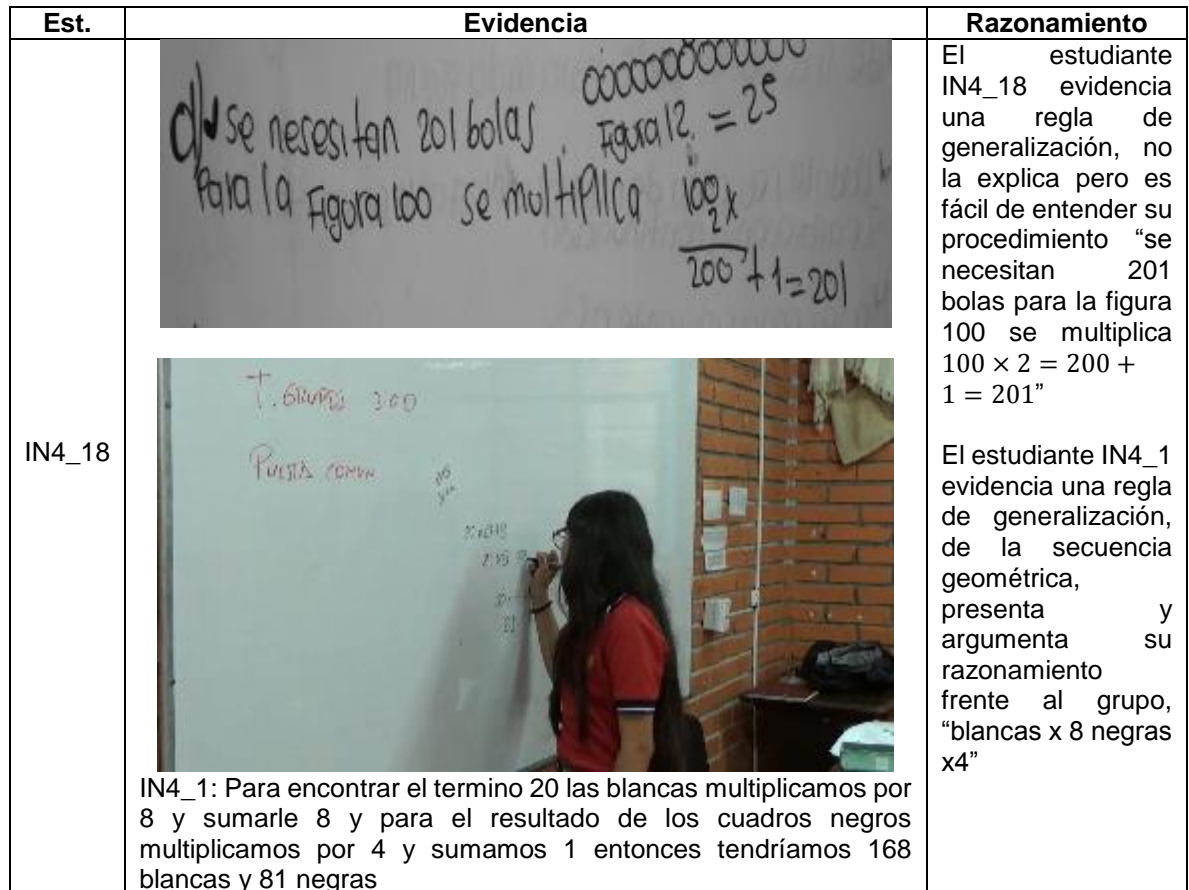 Est.
Evidencia
Razonamiento
IN4_18
d) se nesesitan 201 bolas
Figura 12 = 25
Para la Figura 100 se multiplica 100
2 x
200 + 1 = 201
T. GRUPOS 300
PUESTA COMUN
IN4_1: Para encontrar el termino 20 las blancas multiplicamos por
8 y sumarle 8 y para el resultado de los cuadros negros
multiplicamos por 4 y sumamos 1 entonces tendríamos 168
blancas y 81 negras
El estudiante
IN4_18 evidencia
una regla de
generalización, no
la explica pero es
fácil de entender su
procedimiento “se
necesitan 201
bolas para la figura
100 se multiplica
100 × 2 = 200 +
1 = 201”
El estudiante IN4_1
evidencia una regla
de generalización,
de la secuencia
geométrica,
presenta y
argumenta su
razonamiento
frente al grupo,
“blancas x 8 negras
x4”